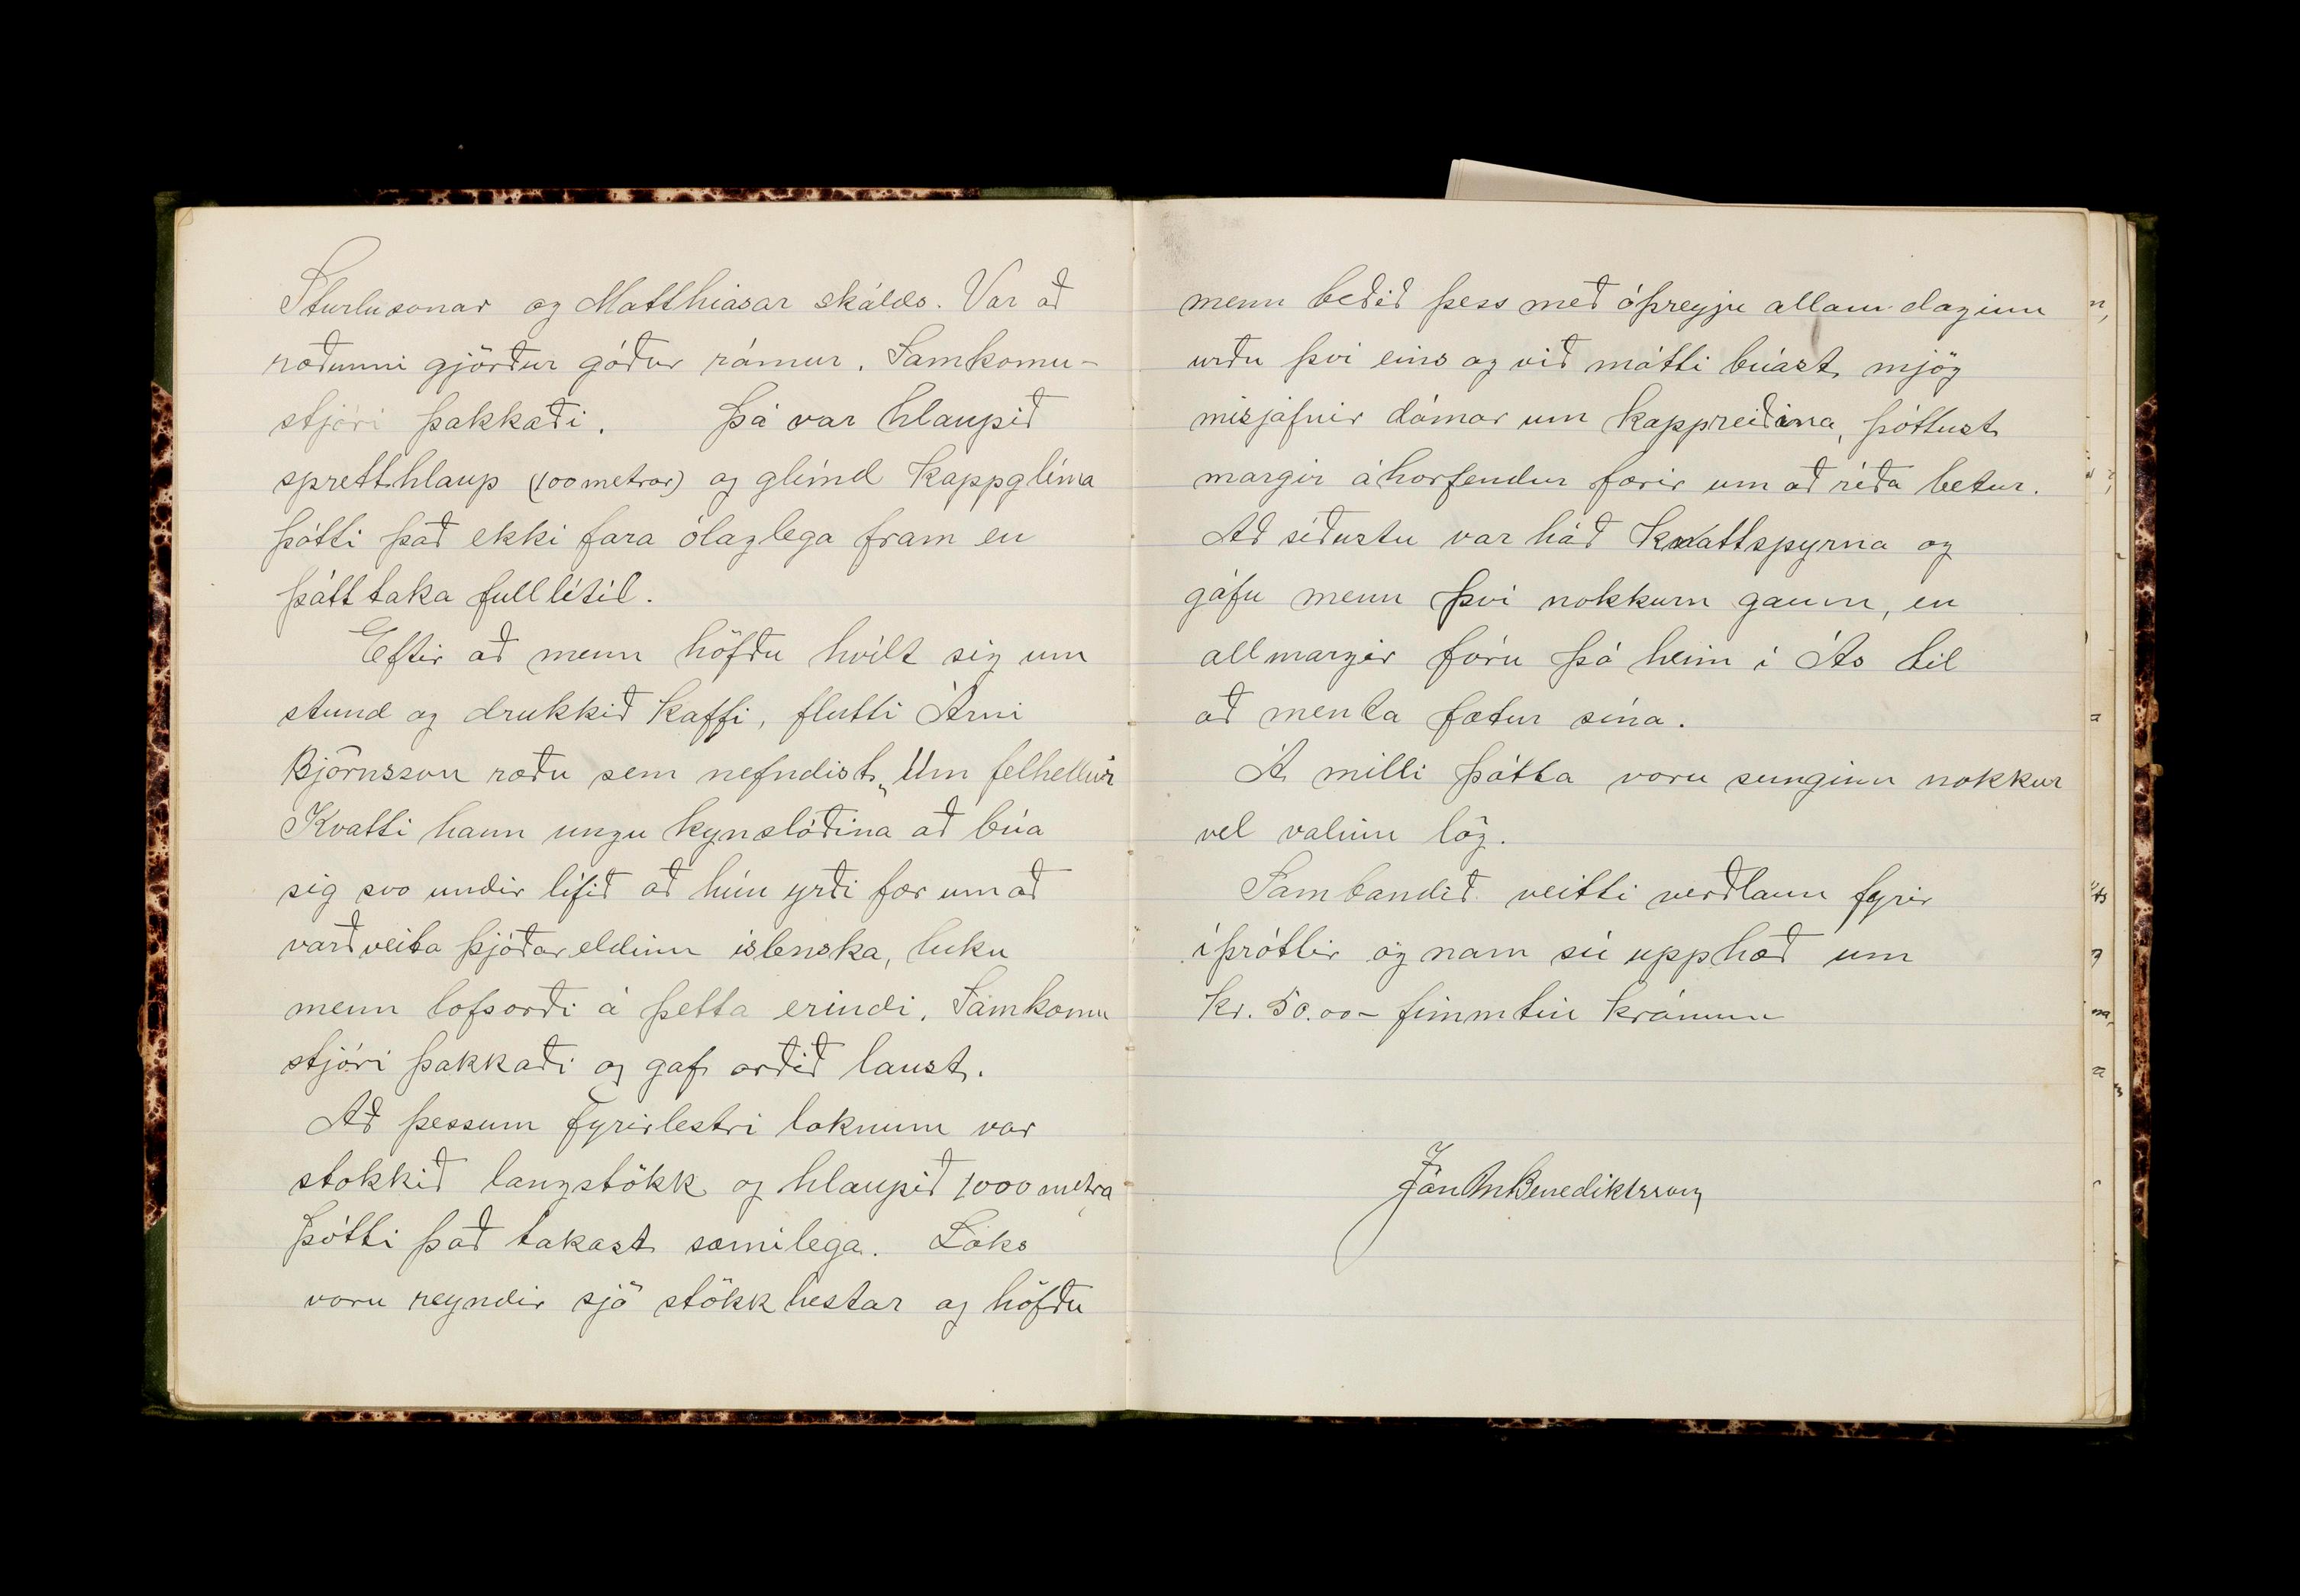 Sturlusonar og Matthíasar skálds. Var að
ræðunni gjörður góður rómur. Samkomu-
stjóri þakkaði. Þá var hlaupið
spretthlaup (100 metrar) og glímd kappglíma
þótti það ekki fara ólaglega fram en
þátttaka full lítil.
Eftir að menn höfðu hvílt sig um
stund og drukkið kaffi, flutti Árni
Björnsson ræðu sem nefndist „Um felhellur
Kvatti hann ungu kynslóðina að búa
sig svo undir lífið að hún yrði fær um að
varðveita þjóðareldinn íslenska, luku
menn lofsorði á þetta erindi. Samkomu
stjóri þakkaði og gaf orðið laust.
Að þessum fyrirlestri loknum var
stokkið langstökk og hlaupið 1000 metra
þótti það takast sæmilega. Loks
voru reyndir sjö stökkhestar og höfðu
menn beðið þess með óþreyju allann daginn
urðu því eins og við mátti búast mjög
misjafnir dómar um kappreiðina, þóttust
margir áhorfendur færir um að ríða betur.
Að síðustu var háð knattspyrna og
gáfu menn því nokkurn gaum, en
allmargir fóru þá heim í Ás til
að menta fætur sína.
Á milli þátta voru sunginn nokkur
vel valinn lög.
Sambandið veitti verðlaun fyrir
íþróttir og nam sú upphæð um
kr. 50.00- fimmtíu krónum
Jón M Benediktsson